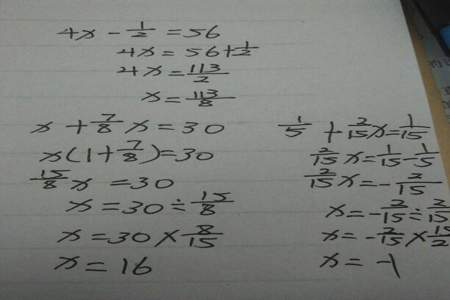 4x - 1/2 = 56
4x = 56 + 1/2
4x = 113/2
x = 113/8
x + 7/8 x = 30
x(1 + 7/8) = 30
15/8 x = 30
x = 30 ÷ 15/8
x = 30 × 8/15
x = 16
1/5 + 2/15 x = 1/15
2/15 x = 1/15 - 1/5
2/15 x = - 2/15
x = - 2/15 ÷ 2/15
x = - 2/15 × 15/2
x = -1